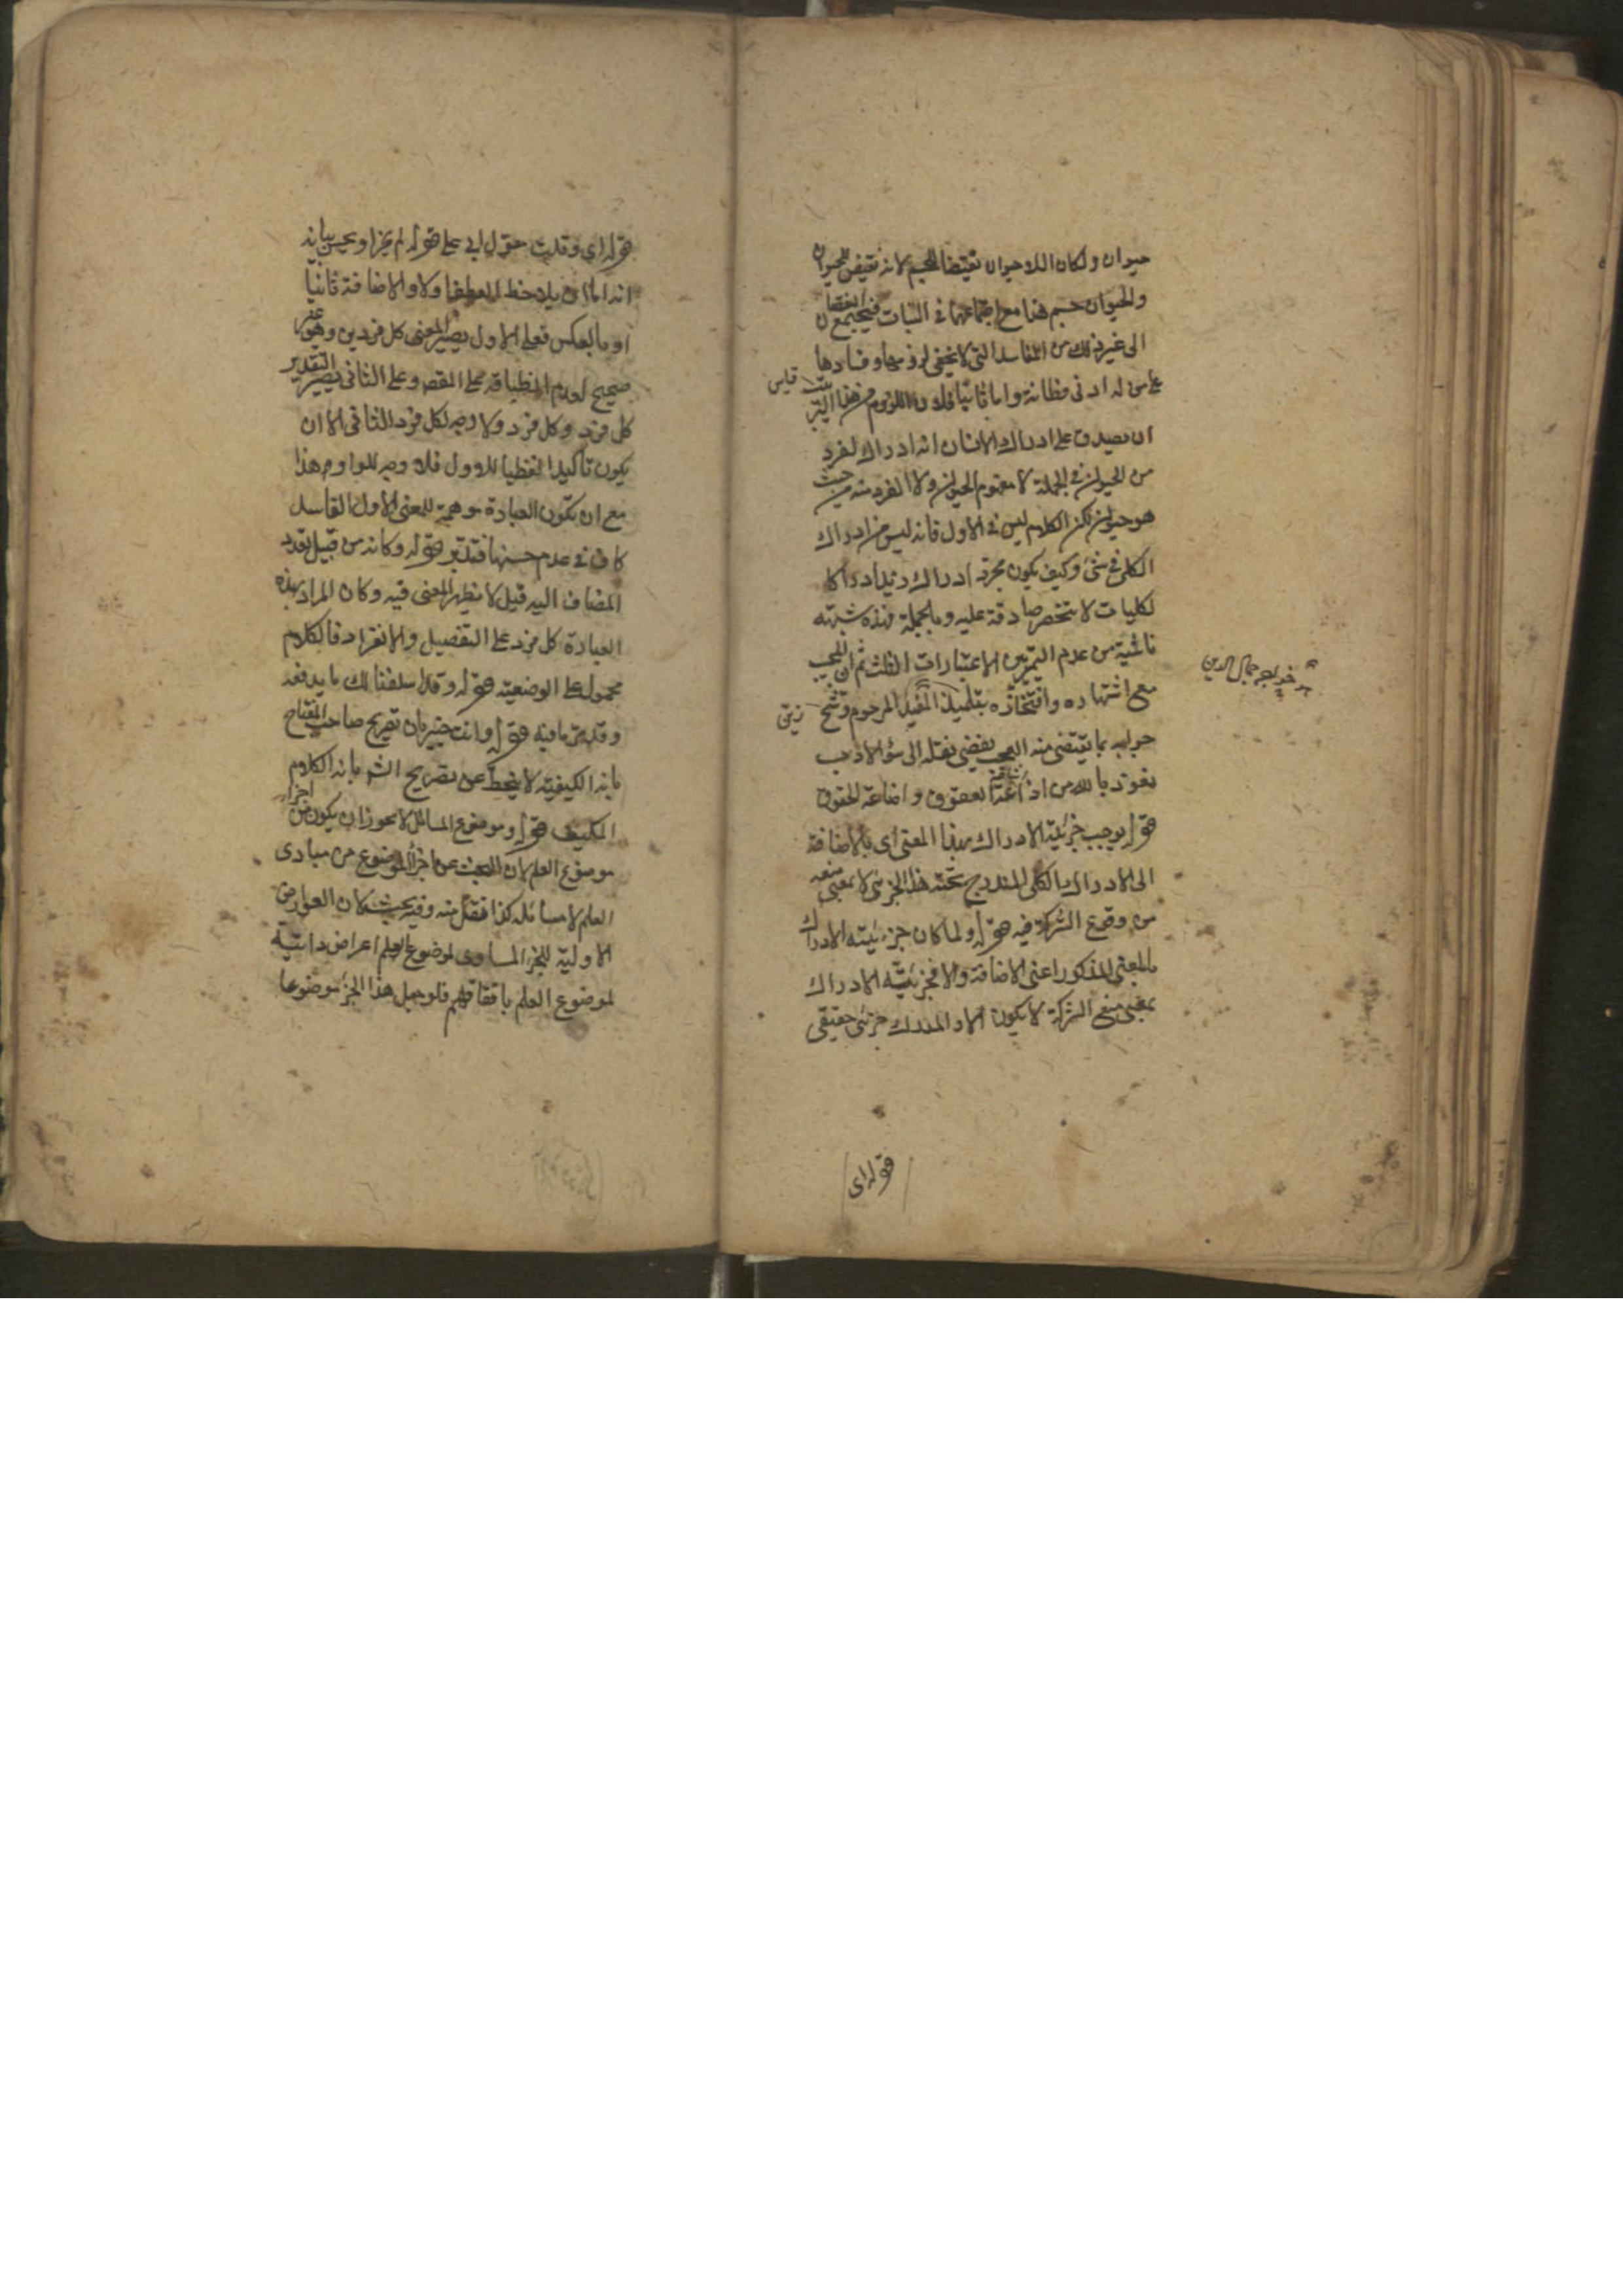 حيوان ولكان اللاحيوان نقيضا للجسم لانه نقيض للحيوان
والحيوان جسم هذا مع اجتماعهما في النبات فيجتمع النقيضان
الى غير ذلك من المفاسد التي لا يخفى لزومها وفسادها
على من له ادنى فطانة واما ثانيا فلان اللازوم من هذا
قياس
ان يصدق على ادراك الانسان انه ادراك لفرد
من الحيوان في الجملة لا مفهوم الحيوان ولا الفرد منه من حيث
هو حيوان لكن الكلام ليس في الاول فانه ليس من ادراك
الكلي في شئ وكيف يكون مجرد ادراك زيد ادراكا
لكليات لا تنحصر صادقة عليه وبالجملة فهذه شبهة
ناشية من عدم التميز بين الاعتبارات الثلث ثم ان المجيب
خواجه جمال الدين
مع اشتهاره وافتخاره بتلميذ المفيد المرحوم وشح
جوابه بما يقتضي منه العجب يفضي نقله الى سؤ الادب
نعوذ بالله من اذ العقوق واضاعة الحقوق
قوله يوجب جزئية الادراك بهذا المعنى اى بالاضافة
الى الادراك بالكلي المندرج تحته هذا الجزئي لا بمعنى منعه
من وقوع الشركة فيه قوله ولما كان جزئية الادراك
بالمعنى المذكور اعنى الاضافة والا فجزئية الادراك
بمعنى منع الشركة لا يكون الا والمدرك جزئي حقيقي
قوله اى
قوله اي وقلت حول ابي على قوله لم يجز او يحسن بيانه
انه اما ان يلاحظ العطف اولا والاضافة ثانيا
او بالعكس فعلى الاول يصير المعنى كل فردين وهو غير
صحيح لعدم انطباقه على المقصو وعلى الثاني يصير التقدير
كل فرد وكل فرد ولا وجه لكل فرد الثاني الا ان
يكون تأكيدا لفظيا للاول فلا وجه للواو مع هذا
مع ان تكون العبارة موهمة للمعنى الاول الفاسد
كاف في عدم حسنها فتدبر قوله وكانه من قبيل تعدد
المضاف اليه قيل لا يظهر المعنى فيه وكان المراد بهذه
العبارة كل فرد على التفصيل والانفراد فالكلام
محمول على الوضعية قوله وقد اسلفنا لك ما يدفعه
وقد مر ما فيه قوله وانت خبير بان تصريح صاحب المفتاح
بانه الكيفية لا ينحط عن تصريح الشـ بانه الكلام
المكيف قوله وموضوع المسائل لا يجوز ان يكون من اجزاء
موضوع العلم لان البحث عن اجزاء الموضوع من مبادى
العلم لا مسائله كذا نقل منه وفيه بحث لان العوارض
الاولية للجزء المساوى لموضوع العلم اعراض ذاتية
لموضوع العلم باتفاقهم فلو جعل هذا الجزء موضوعا